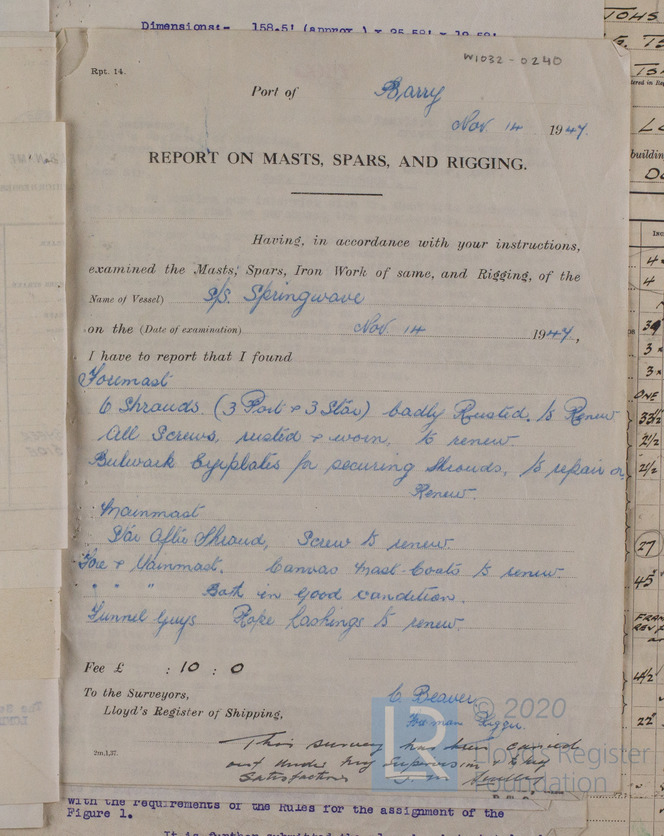 Dimensions:- 158.5' (approx.) x 25.58' x 12.58'
W1032 - 0240
Rpt. 14.
Port of Barry
Nov. 14 1947.
REPORT ON MASTS, SPARS, AND RIGGING.
Having, in accordance with your instructions,
examined the Masts, Spars, Iron Work of same, and Rigging, of the
Name of Vessel) S/S. Springwave
on the (Date of examination) Nov 14 1947,
I have to report that I found
Foremast
6 Shrouds. (3 Port + 3 Star) badly Rusted. to Renew
All Screws, rusted + worn, to renew.
Bulwark Eyeplates for securing Shrouds, to repair or
Renew.
Mainmast
Star After Shroud, Screw to renew.
Fore + Mainmast. Canvas Mast-Coats to renew.
" " " Both in good condition.
Funnel Guys Rope Lashings to renew.
Fee £ : 10 : 0
To the Surveyors,
Lloyd's Register of Shipping,
C. Beaver,
Foreman Rigger.
This survey has been carried
out under my supervision + to my
satisfaction
2m.1,37.
© 2020
Lloyd's Register
Foundation
with the requirements of the Rules for the assignment of the
Figure 1.
It is further submitted